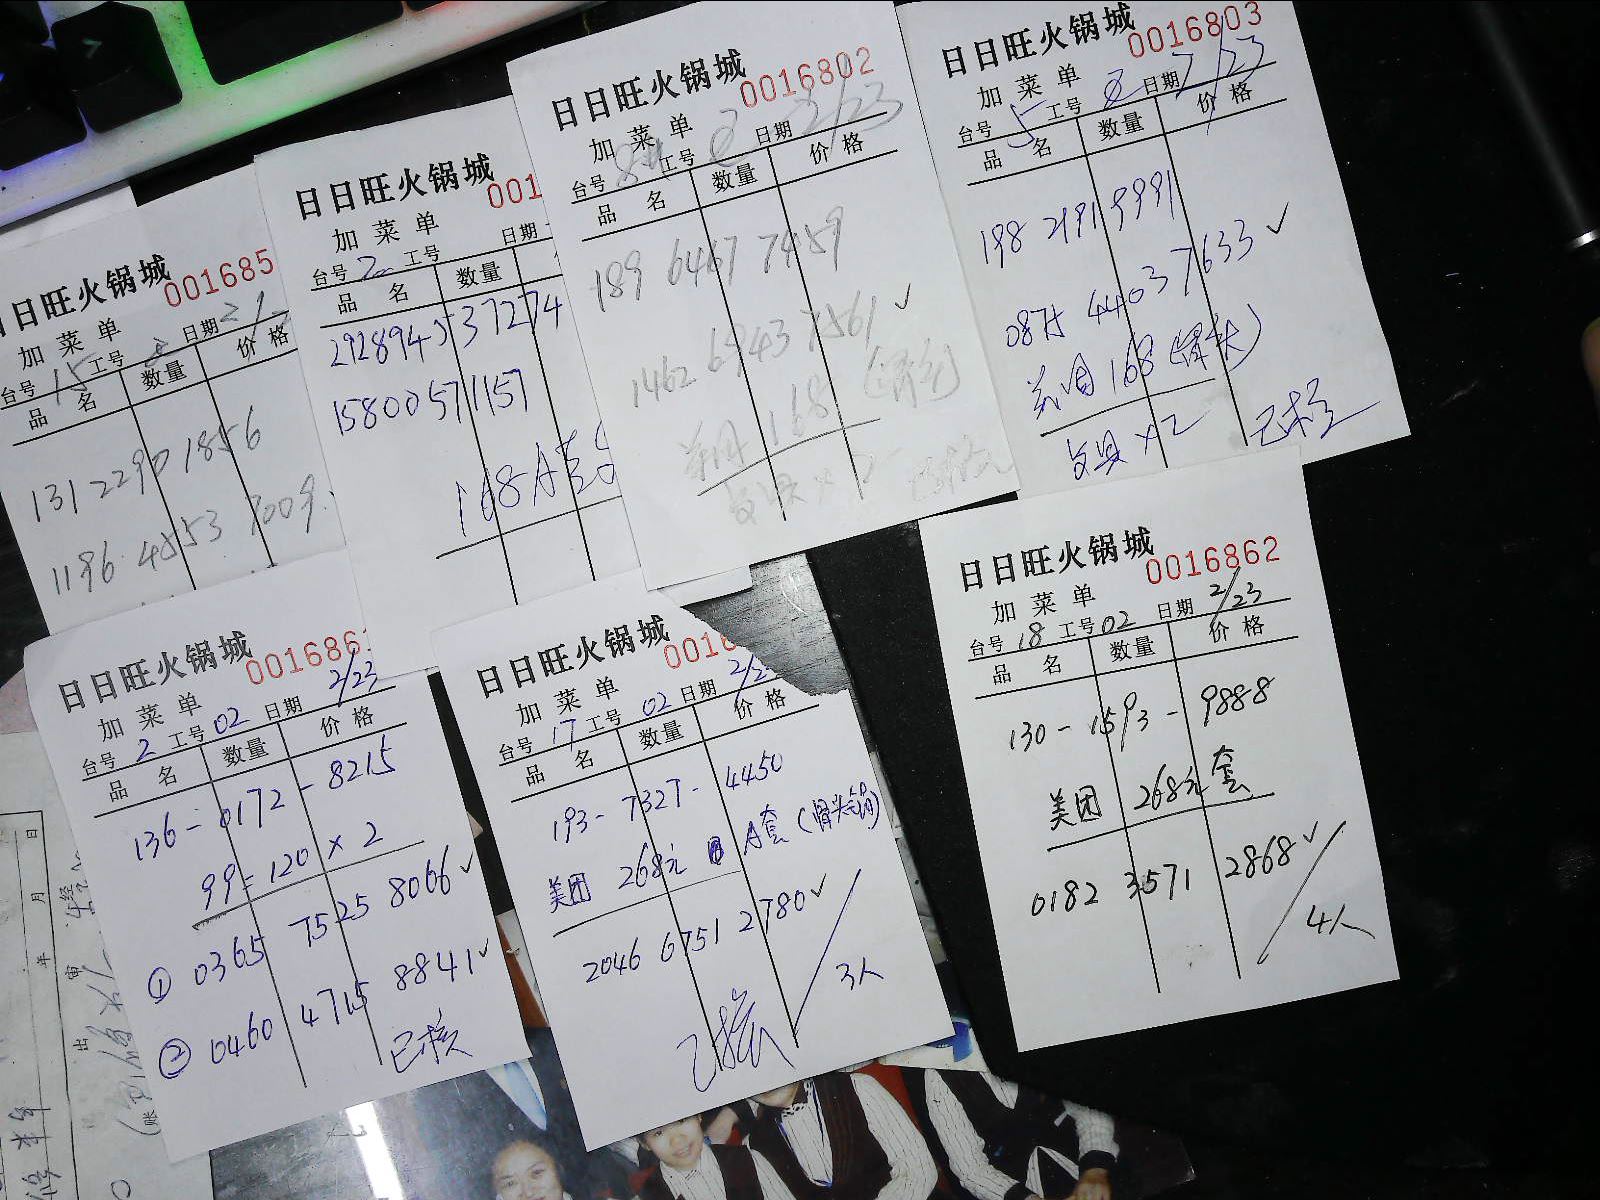 日日旺火锅城
001685
加菜单
台号 15 工号 日期 2/2
品名 数量 价格
131 2290 1856
1196 4853 7009
日日旺火锅城
001
加菜单
台号 工号 日期
品名 数量
292894537274
15800571157
168A套
日日旺火锅城
0016802
加菜单
台号 8 工号 2 日期 2/23
品名 数量 价格
189 6467 7459
1462 6943 7561 ✓
美团 168 (清汤)
日日旺火锅城
0016803
加菜单
台号 5 工号 2 日期 2/23
品名 数量 价格
198 2191 9991
0875 4403 7633 ✓
美团 168 (骨头)
餐具 x2 已核
日日旺火锅城
001686
加菜单
台号 2 工号 02 日期 2/23
品名 数量 价格
136 - 0172 - 8215
99=120 x 2
① 0365 7525 8066 ✓
② 0460 4715 8841 ✓
已核
日日旺火锅城
0016
加菜单
台号 17 工号 02 日期 2/2
品名 数量 价格
193 - 7327 - 4450
美团 268元 A套 (骨头锅)
2046 6751 2780 ✓
3人
已核
日日旺火锅城
0016862
加菜单
台号 18 工号 02 日期 2/23
品名 数量 价格
130 - 1593 - 9888
美团 268元套
0182 3571 2868 ✓
4人